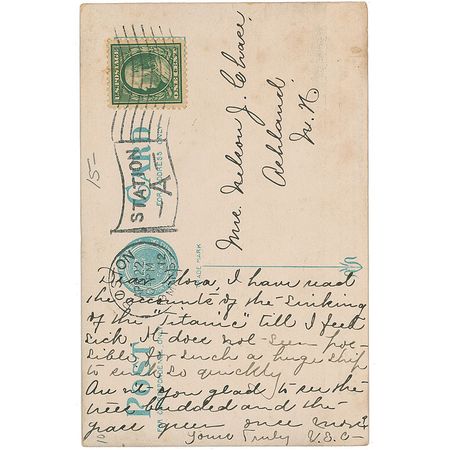 U.S. POSTAGE
ONE CENT
15-
STATION
A
BOSTON
22
12
MASS.
POST CARD
FOR ADDRESS ONLY
TRADE MARK
Mrs. Nelson J. Chace
Ashland
N. H.
Dear Flora, I have read
the accounts of the sinking
of the "Titanic" till I feel
sick. It does not seem pos-
sible for such a huge ship
to sink so quickly
Aren't you glad to see the
trees budded and the
grass green once more?
Yours Truly V.E.C-